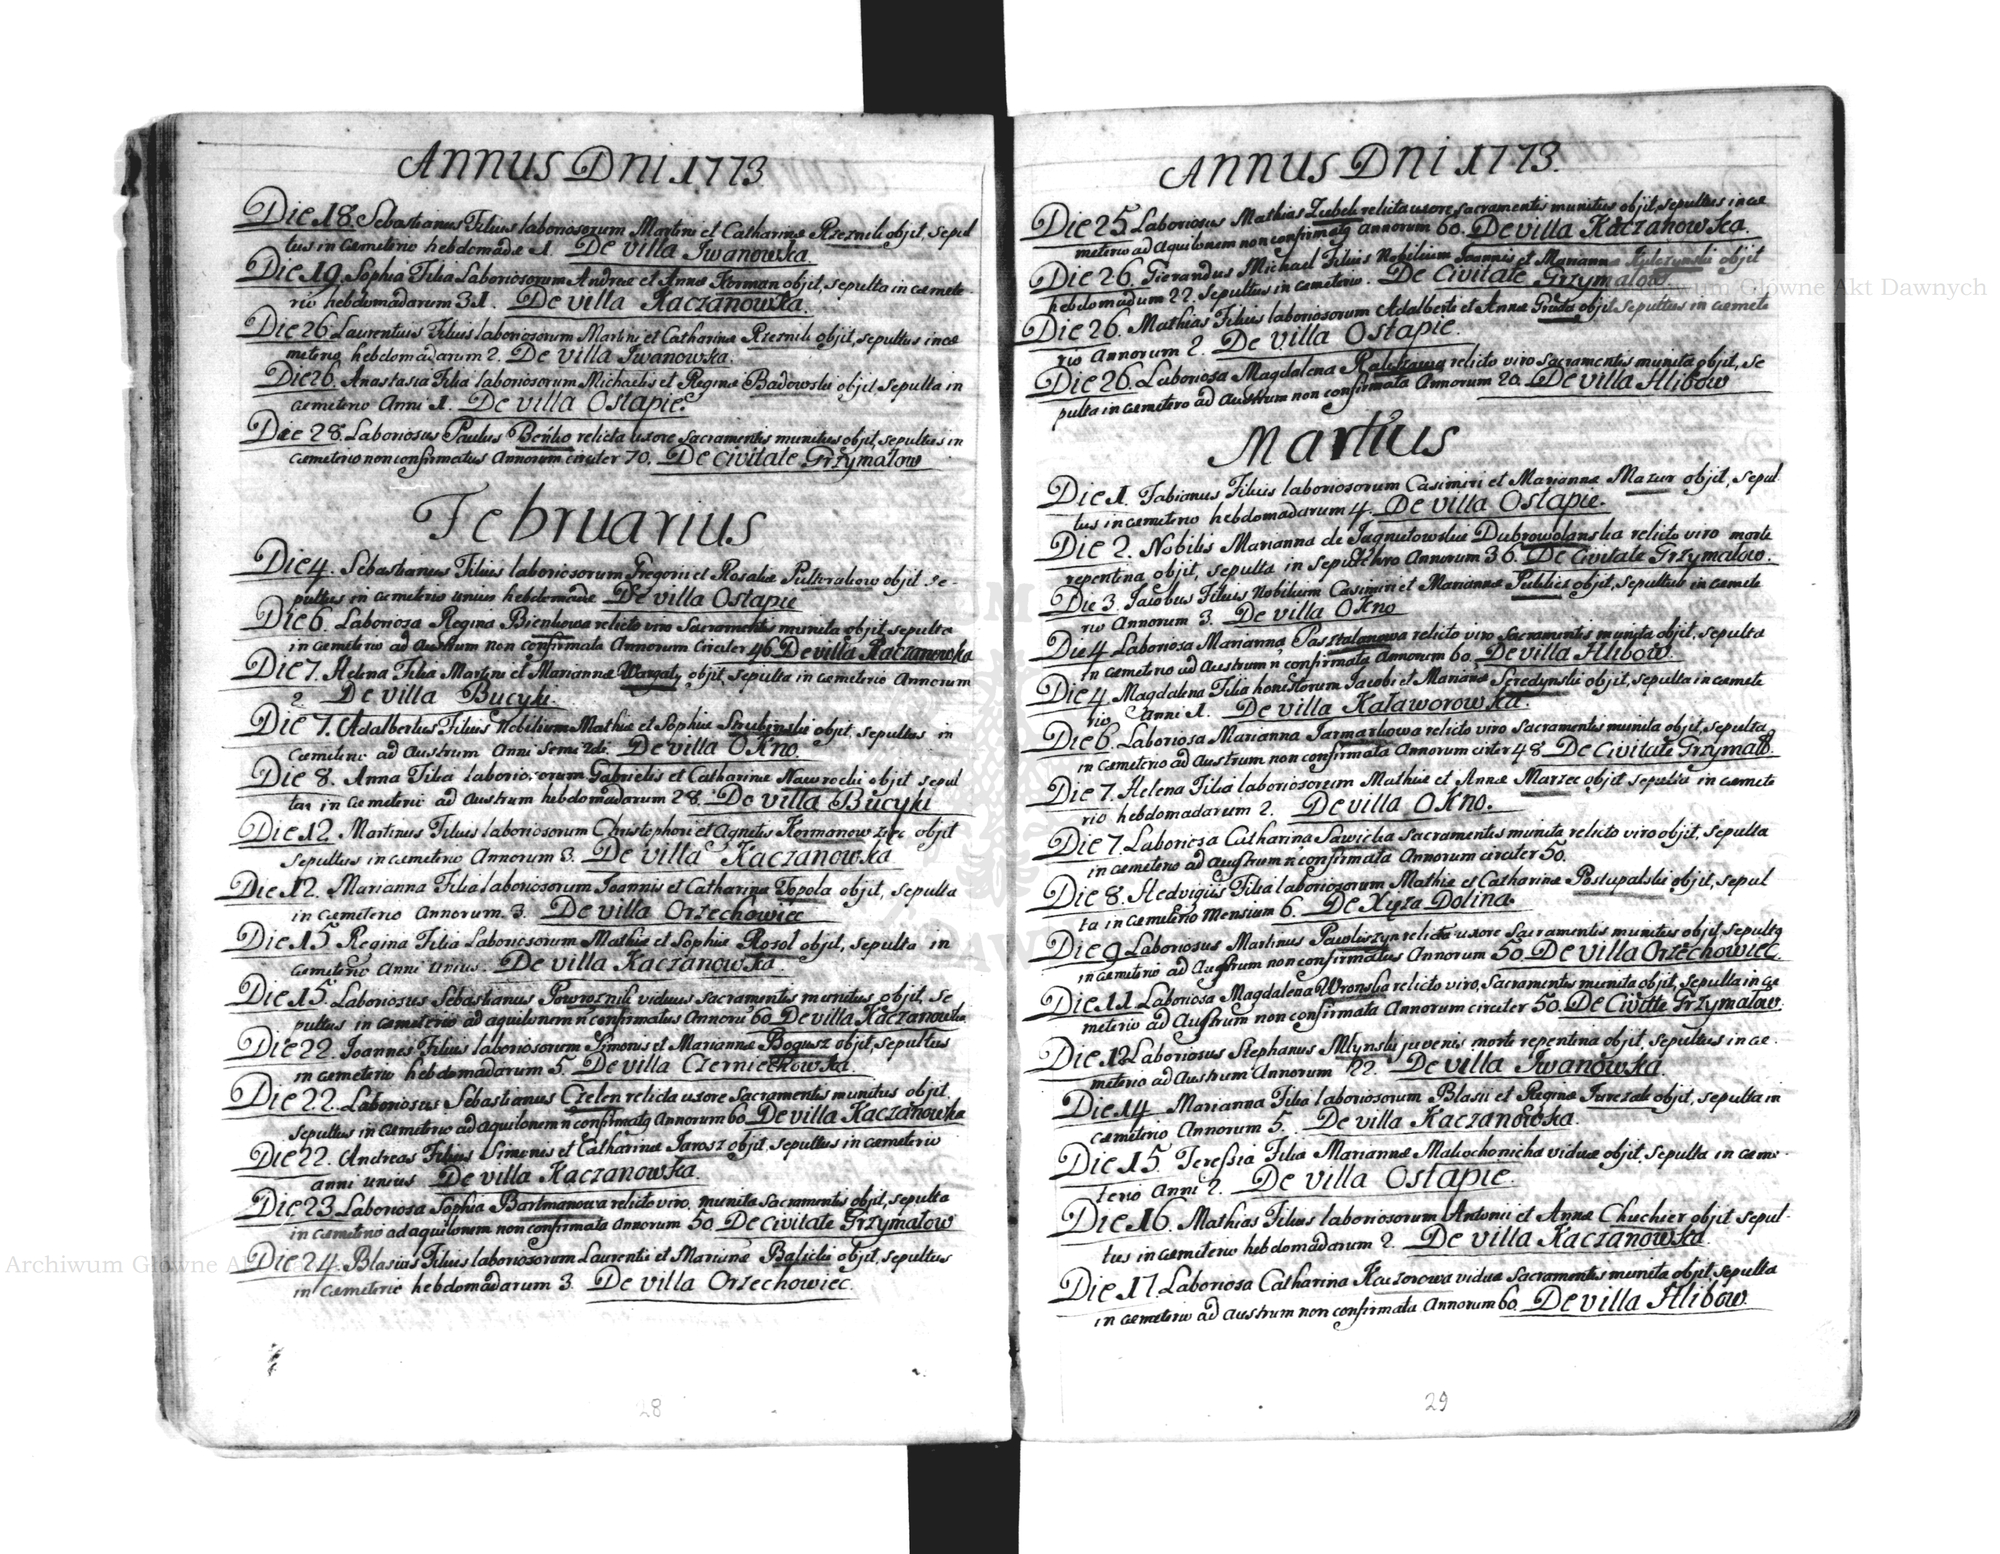 Annus Dni 1773
Die 18. Sebastianus Filius laboriosorum Martini et Catharinæ Rzeznik objit, sepul
tus in cæmeterio hebdomadæ 1. De villa Iwanowka.
Die 19. Sophia Filia Laboriosorum Andreæ et Annæ Korman objit, sepulta in cæmete
rio hebdomadarum 31. De villa Kaczanowka.
Die 26. Laurentius Filius laboriosorum Martini et Catharinæ Rzeznik objit, sepultus in cæ
meterio hebdomadarum 2. De villa Iwanowka.
Die 26. Anastasia Filia laboriosorum Michaelis et Reginæ Badowski objit sepulta in
cæmeterio Anni 1. De villa Ostapie.
Die 28. Laboriosus Paulus Beńko relicta uxore Sacramentis munitus objit, sepultus in
cæmeterio non confirmatus Annorum circiter 70. De civitate Grzymałow
Februarius
Die 4. Sebastianus Filius laboriosorum Gregorii et Rosaliæ objit se-
pultus in cæmeterio unius hebdomadæ De villa Ostapie
Die 6. Laboriosa Regina Bienkowa relicto viro Sacramentis munita objit, sepulta
in cæmeterio ad Austrum non confirmata Annorum circiter 46 De villa Kaczanowka
Die 7. Helena Filia Martini et Mariannæ Wargały objit, sepulta in cæmeterio Annorum
2. De villa Bucyki.
Die 7. Adalbertus Filius Nobilium Mathiæ et Sophiæ objit, sepultus in
Cæmeterio ad Austrum Anni De villa Okno.
Die 8. Anna Filia laboriosorum Gabrielis et Catharinæ Nawrocki objit sepul
ta in cæmeterio ad Austrum hebdomadarum 28. De villa Bucyki
Die 12. Martinus Filius laboriosorum Christophori et Agnetis objit
sepultus in cæmeterio Annorum 3. De villa Kaczanowka
Die 12. Marianna Filia laboriosorum Joannis et Catharinæ Topola objit, sepulta
in cæmeterio Annorum 3. De villa Orzechowiec
Die 15 Regina Filia Laboriosorum Mathiæ et Sophiæ Rosoł objit, sepulta in
cæmeterio Anni unius. De villa Kaczanowka.
Die 15. Laboriosus Sebastianus Powroznik viduus Sacramentis munitus objit, se
pultus in cæmeterio ad aquilonem ñ confirmatus Annorũ 60 De villa Kaczanowka
Die 22. Joannes Filius laboriosorum Simonis et Mariannæ Bogusz objit, sepultus
in cæmeterio hebdomadarum 5. De villa Czerniechowka.
Die 22. Laboriosus Sebastianus Czelen relicta uxore Sacramentis munitus objit,
sepultus in cæmeterio ad aquilonem ñ confirmatg Annorum 60 De villa Kaczanowka
Die 22. Andreas Filius Simonis et Catharinæ Jarosz objit, sepultus in cæmeterio
anni unius De villa Kaczanowka.
Die 23 Laboriosa Sophia Bartmanowa relicto viro, munita Sacramentis objit, sepulta
in cæmeterio ad aquilonem non confirmata Annorum 50 De civitate Grzymałow
Die 24. Blasius Filius laboriosorum Laurentii et Mariannæ Balicki objit, sepultus
in cæmeterio hebdomadarum 3. De villa Orzechowiec.
28
Annus Dni 1773.
Die 25 Laboriosus Mathias Zubek relicta uxore sacramentis munitus objit, sepultus in cæ
meterio ad Aquilonem non confirmatg Annorum 60. De villa Kaczanowka.
Die 26. Michael Filius Nobilium Joannis et Mariannæ objit
hebdomadum 22. sepultus in cæmeterio. De civitate Grzymałow
Die 26. Mathias Filius laboriosorum Adalberti et Annæ objit sepultus in cæmete
rio Annorum 2. De villa Ostapie.
Die 26. Laboriosa Magdalena relicto viro Sacramentis munita objit, se
pulta in cæmeterio ad Austrum non confirmata Annorum 20. De villa Hlibow
Martius
Die 1. Fabianus Filius laboriosorum Casimiri et Mariannæ Mazur objit, sepul
tus in cæmeterio hebdomadarum 4. De villa Ostapie.
Die 2. Nobilis Marianna de Dubrowolanska relicto viro morte
repentina objit, sepulta in sepulchro Annorum 36. De Civitate Grzymałow.
Die 3. Jacobus Filius Nobilium Casimiri et Mariannæ objit, sepultus in cæmete
rio Annorum 3. De villa Okno
Die 4 Laboriosa Marianna relicto viro Sacramentis munita objit, sepulta
in cæmeterio ad Austrum ñ confirmata Annorum 60. De villa Hlibow.
Die 4. Magdalena Filia honestorum Jacobi et Mariannæ Sredynski objit, sepulta in cæmete
rio Anni 1. De villa Kaławorowka.
Die 6. Laboriosa Marianna Jarmarkowa relicto viro Sacramentis munita objit, sepulta
in cæmeterio ad Austrum non confirmata Annorum cirter 48 De Civitate Grzymałõ.
Die 7. Helena Filia laboriosorum Mathiæ et Annæ Marzec objit sepulta in cæmete
rio hebdomadarum 2. De villa Okno.
Die 7. Laboriosa Catharina Sawicka Sacramentis munita relicto viro objit, sepulta
in cæmeterio ad Austrum ñ confirmata Annorum circiter 50.
Die 8. Hedvigis Filia laboriosorum Mathiæ et Catharinæ Postupalski objit, sepul
ta in cæmeterio Mensium 6. De Xięza Dolina.
Die 9 Laboriosus Martinus Pawliszyn relicta uxore Sacramentis munitus objit, sepultg
in cæmeterio ad Austrum non confirmatus Annorum 50. De villa Orzechowiec.
Die 11. Laboriosa Magdalena Wronska relicto viro, Sacramentis munita objit, sepulta in cæ
meterio ad Austrum non confirmata Annorum circiter 50. De Civitte Grzymałow.
Die 12 Laboriosus Stephanus Młynski juvenis morte repentina objit, sepultus in cæ.
meterio ad Austrum Annorum 22. De villa Iwanowka.
Die 14 Marianna Filia laboriosorum Blasii et Reginæ Jurczak objit, sepulta in
cæmeterio Annorum 5. De villa Kaczanowka.
Die 15. Teressia Filia Mariannæ viduæ objit, sepulta in cæme-
terio Anni 2. De villa Ostapie.
Die 16. Mathias Filius laboriosorum Antonii et Annæ objit sepul-
tus in cæmeterio hebdomadarum 2. De villa Kaczanowka.
Die 17. Laboriosa Catharina vidua Sacramentis munita objit, sepulta
in cæmeterio ad Austrum non confirmata Annorum 60. De villa Hlibow.
29
Archiwum Główne Akt Dawnych